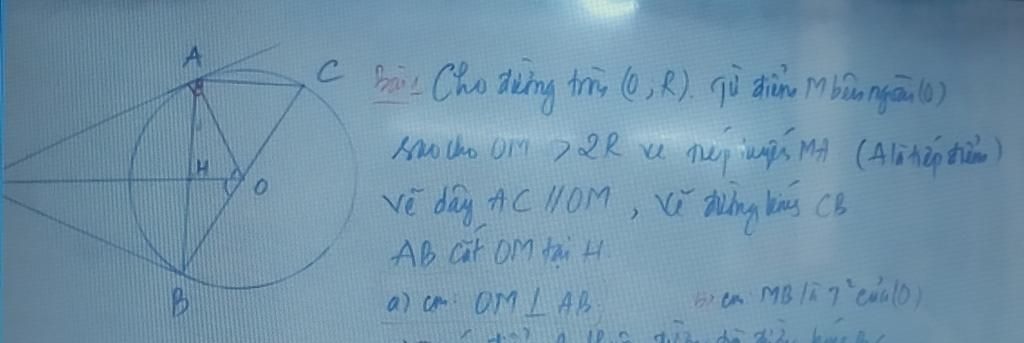 A
C
H
O
B
Bài 1 Cho đường tròn (O; R). Từ điểm M bên ngoài (O)
sao cho OM > 2R vẽ tiếp tuyến MA (A là tiếp điểm)
Vẽ dây AC // OM, vẽ đường kính CB
AB cắt OM tại H.
a) cm: OM ⊥ AB. b) cm MB là T² của (O)